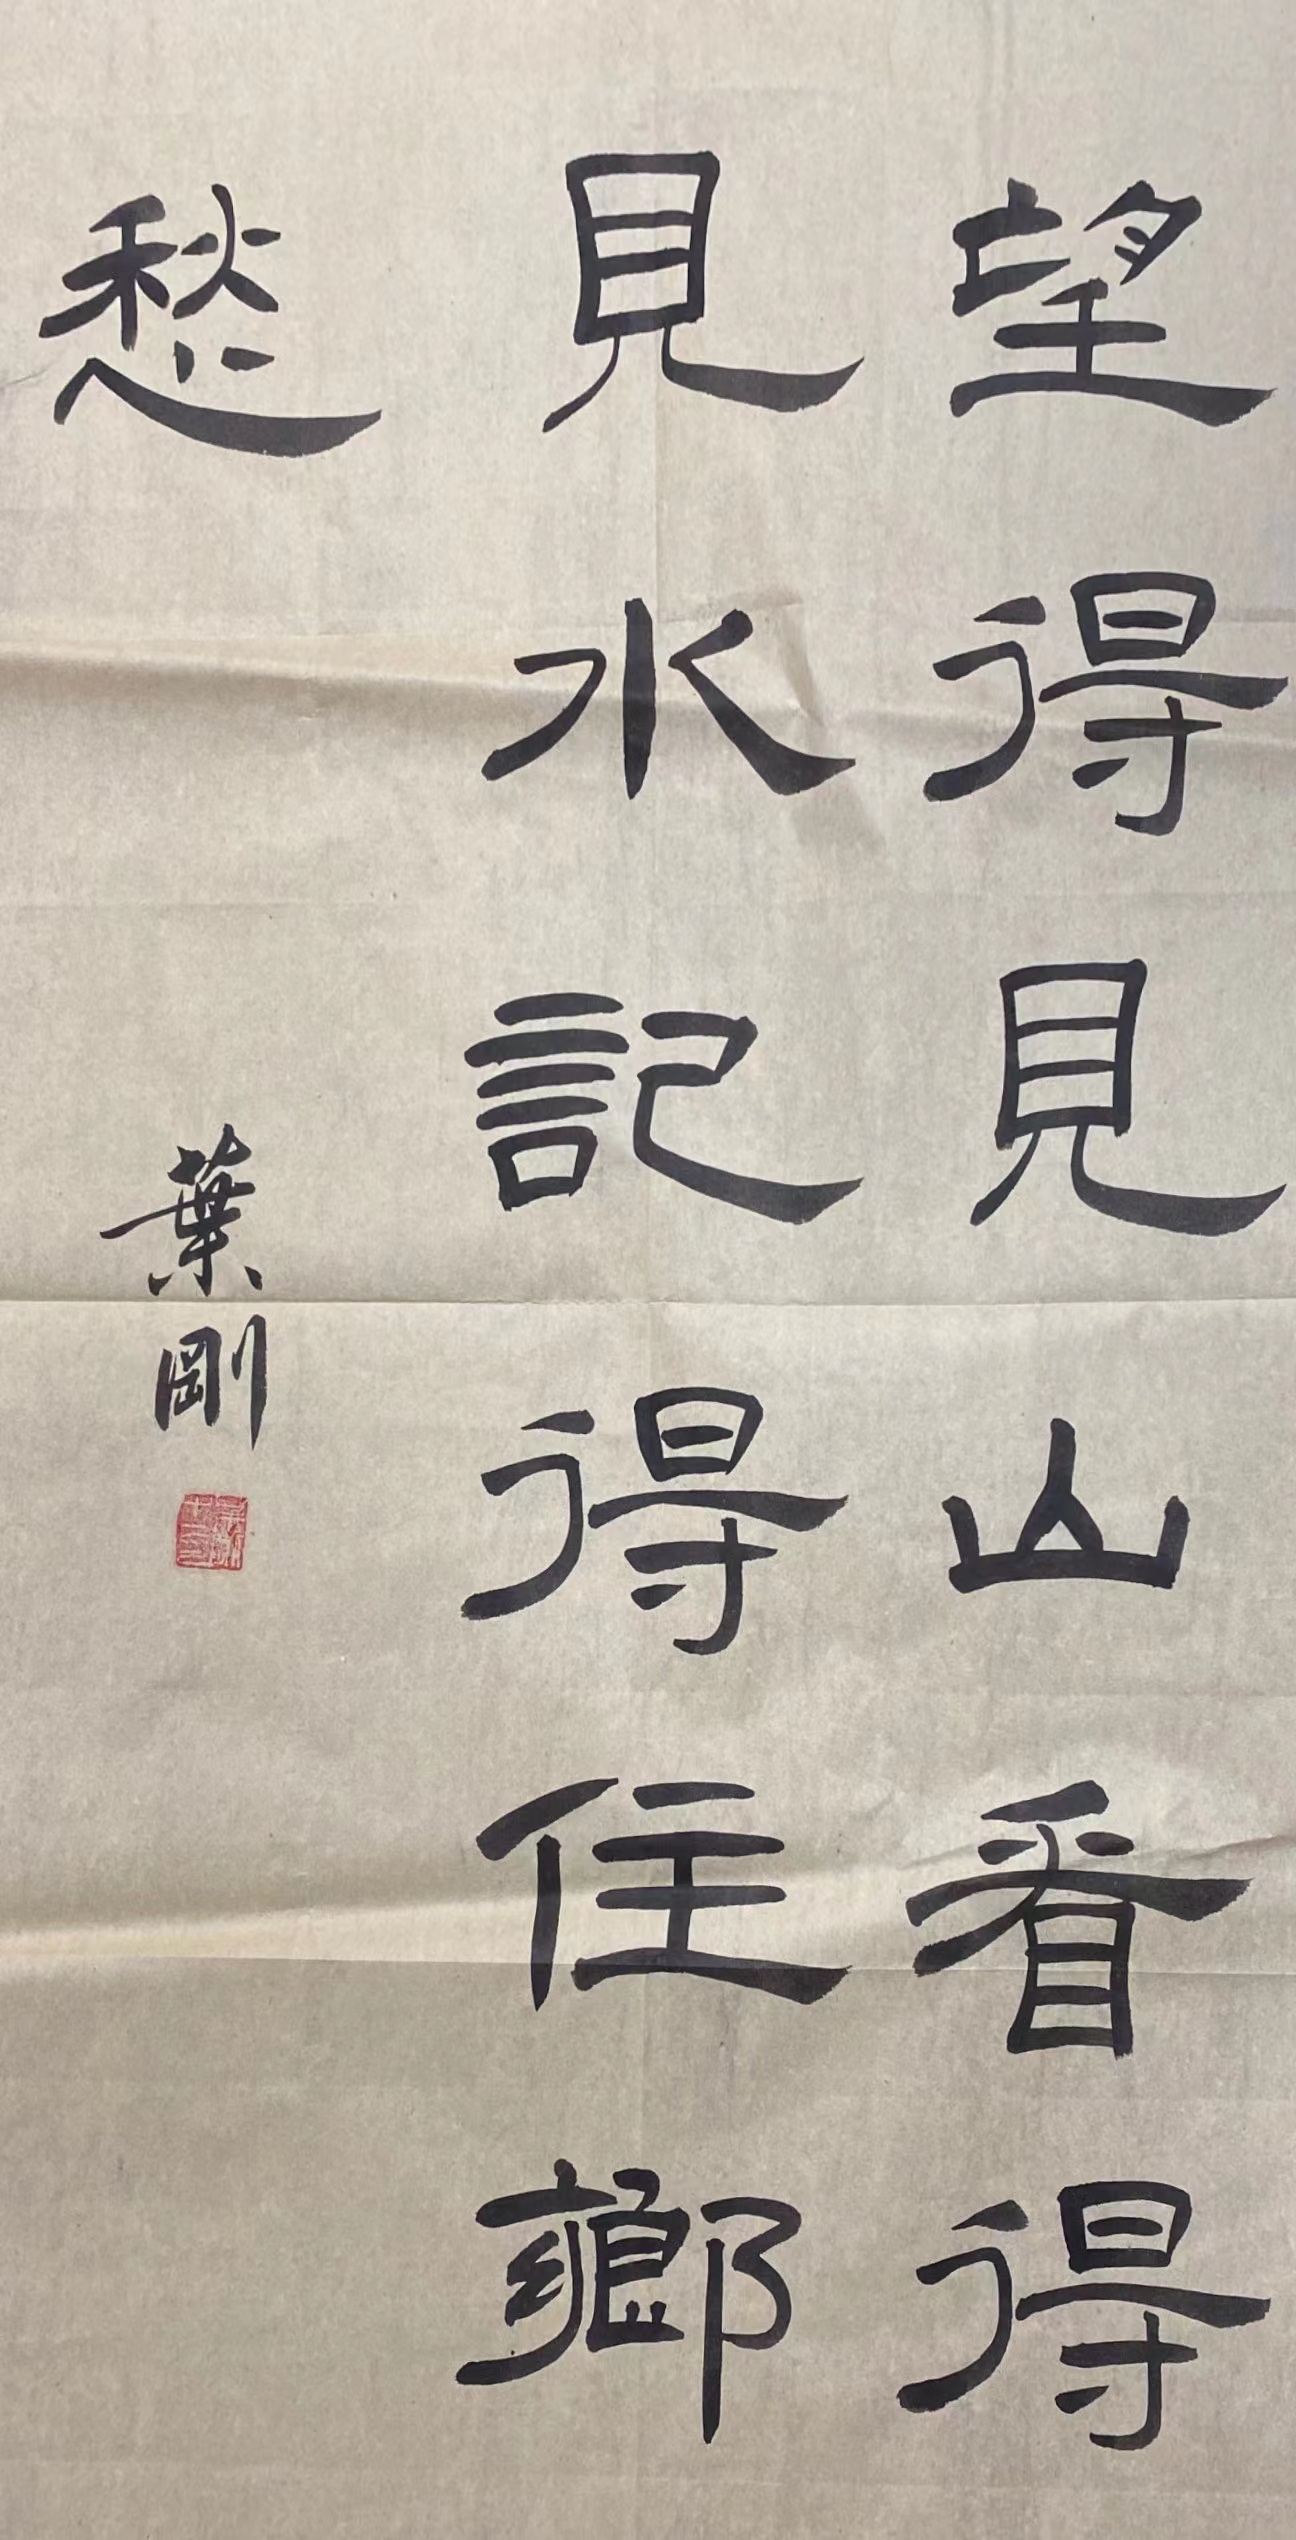 望得見山看得
見水記得住鄉
愁
葉剛